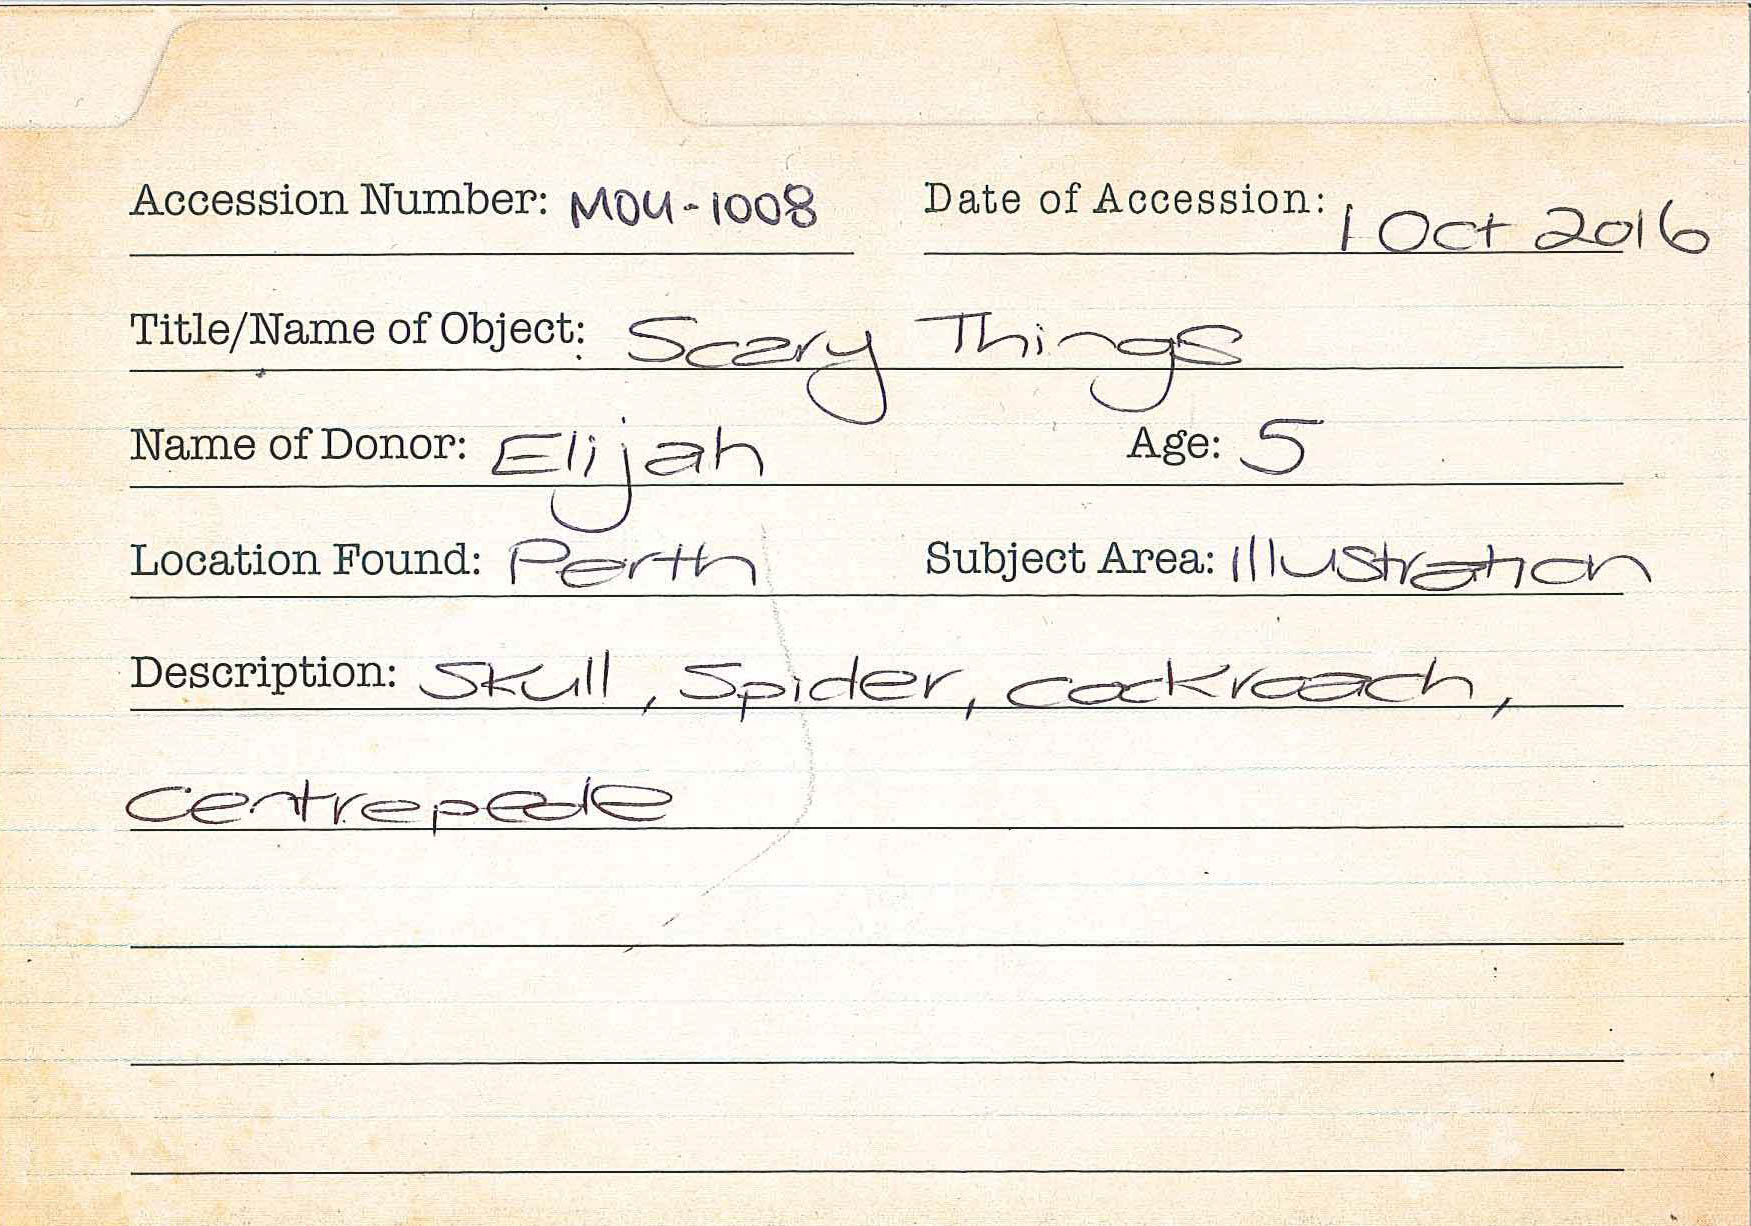 Accession Number: MOU-1008 Date of Accession: 1 Oct 2016
Title/Name of Object: Scary Things
Name of Donor: Elijah Age: 5
Location Found: Perth Subject Area: Illustration
Description: Skull, Spider, cockroach,
centrepede